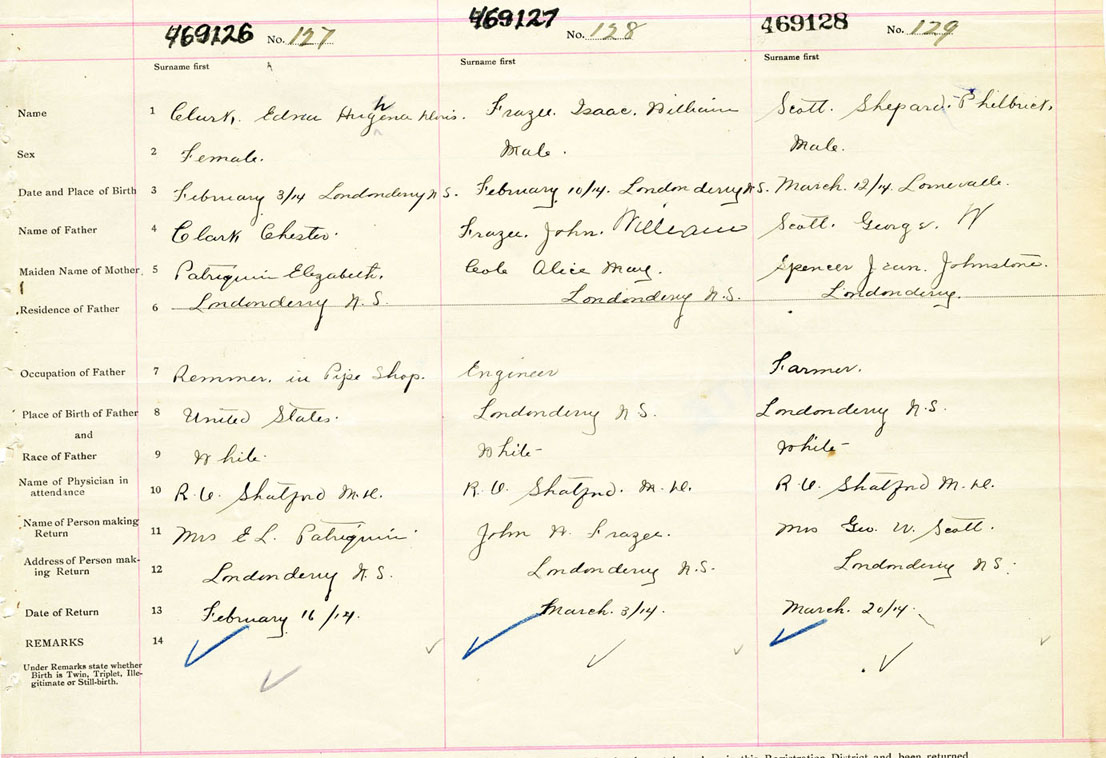 469126 No. 127 469127 No. 128 469128 No. 129
Surname first Surname first Surname first
Name 1 Clark, Edna Hughena Frazee. Isaac. William Scott. Shepard. Philbrick.
Sex 2 Female. Male. Male.
Date and Place of Birth 3 February 3/14 Londonderry N.S. February 10/14. Londonderry N.S. March. 12/14. Lornevale.
Name of Father 4 Clark Chester. Frazee. John. William Scott. George. W
Maiden Name of Mother. 5 Patriquin Elizabeth. Cole Alice May. Spencer Jean. Johnstone.
Residence of Father 6 Londonderry N.S. Londonderry N.S. Londonderry.
Occupation of Father 7 Remmer. in Pipe Shop. Engineer Farmer.
Place of Birth of Father 8 United States. Londonderry N.S. Londonderry N.S.
and
Race of Father 9 White. White White
Name of Physician in
attendance 10 R. V. Shatford M.D. R. V. Shatford. M.D. R. V. Shatford M.D.
Name of Person making
Return 11 Mrs E L. Patriquin John W. Frazee. Mrs Geo. W. Scott.
Address of Person mak-
ing Return 12 Londonderry N.S. Londonderry N.S. Londonderry N.S.
Date of Return 13 February 16/14. March. 3/14. March. 20/14.
REMARKS 14
Under Remarks state whether
Birth is Twin, Triplet, Ille-
gitimate or Still-birth.
this Registration District and been returned